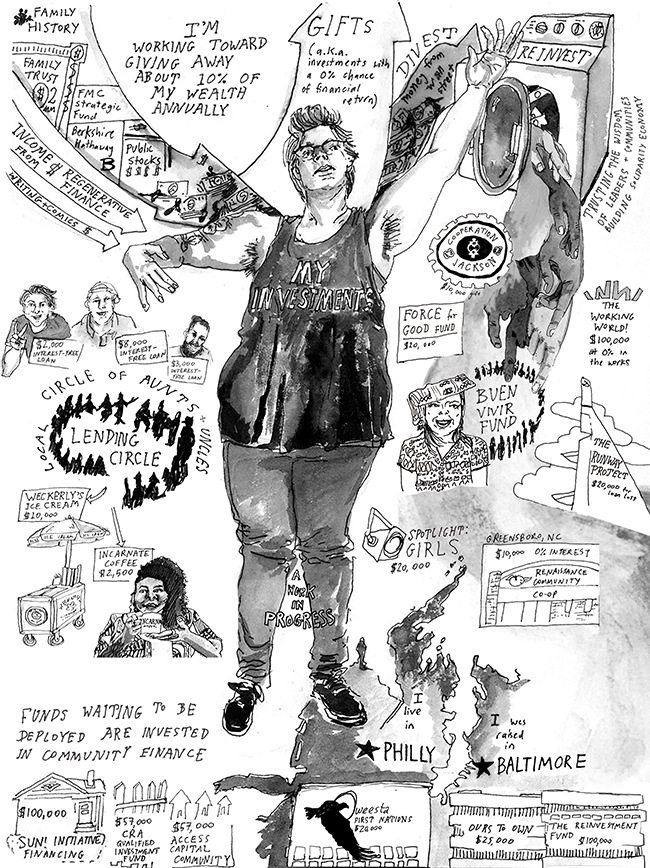 FAMILY
HISTORY
FAMILY
TRUST
$2
FMC
Strategic
Fund
Berkshire
Hathaway
B
Public
Stocks
$ $ $ $
INCOME
FROM
REGENERATIVE
FINANCE
WRITING + COMICS $
I'M
WORKING TOWARD
GIVING AWAY
ABOUT 10% OF
MY WEALTH
ANNUALLY
GIFTS
(a.k.a.
investments with
a 0% chance
of financial
return)
DIVEST
money from
wall
street
REINVEST
TRUSTING THE WISDOM
OF LEADERS + COMMUNITIES
BUILDING SOLIDARITY ECONOMY
MY
INVESTMENTS
COOPERATION
JACKSON
$10,000 gift
$2,000
INTEREST-FREE
LOAN
$8,000
INTEREST-
FREE LOAN
$3,000
INTEREST-
FREE LOAN
FORCE for
GOOD FUND
$20,000
THE
WORKING
WORLD!
$100,000
at 0% in
the works
LOCAL CIRCLE OF AUNTS + UNCLES
LENDING
CIRCLE
BUEN
VIVIR
FUND
THE
RUNWAY
PROJECT
$20,000 for
loan loss
WECKERLY'S
ICE CREAM
$10,000
ICE CREAM
INCARNATE
COFFEE
$2,500
INCARNATE
SPOTLIGHT:
GIRLS
$20,000
GREENSBORO, NC
$10,000 0% INTEREST
RENAISSANCE
COMMUNITY
CO-OP
A
WORK
IN
PROGRESS
I
live
in
PHILLY
I was
raised
in
BALTIMORE
FUNDS WAITING TO BE
DEPLOYED ARE INVESTED
IN COMMUNITY FINANCE
$100,000
SUN! INITIATIVE
FINANCING
$57,000
CRA
QUALIFIED
INVESTMENT
FUND
$57,000
ACCESS
CAPITAL
COMMUNITY
weesta
FIRST NATIONS
$20,000
OURS TO OWN
$25,000
THE REINVESTMENT
FUND $100,000